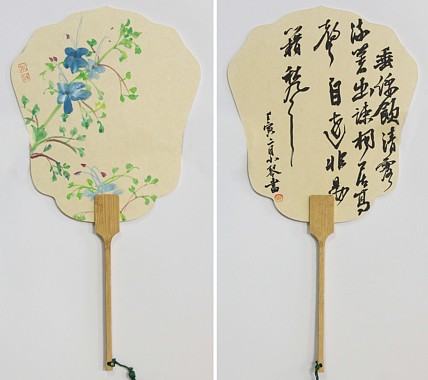 垂緌飲清露
流響出疎桐居高
聲自遠非是
藉秋風
壬寅二月小書